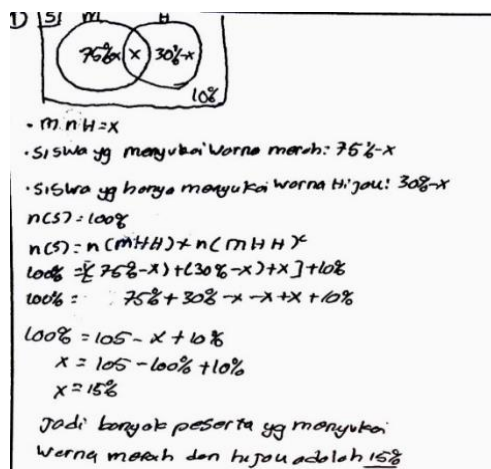 1) S M H
75%-x x 30%-x
10%
• M n H = x
• Siswa yg menyukai warna merah: 75%-x
• Siswa yg hanya menyukai warna Hijau: 30%-x
n(S) = 100%
n(S) = n(MHH) + n(MHH)ᶜ
100% = [75%-x) + (30%-x) + x] + 10%
100% = 75% + 30% -x -x +x + 10%
100% = 105 - x + 10%
x = 105 - 100% + 10%
x = 15%
Jadi banyak peserta yg menyukai
warna merah dan hijau adalah 15%